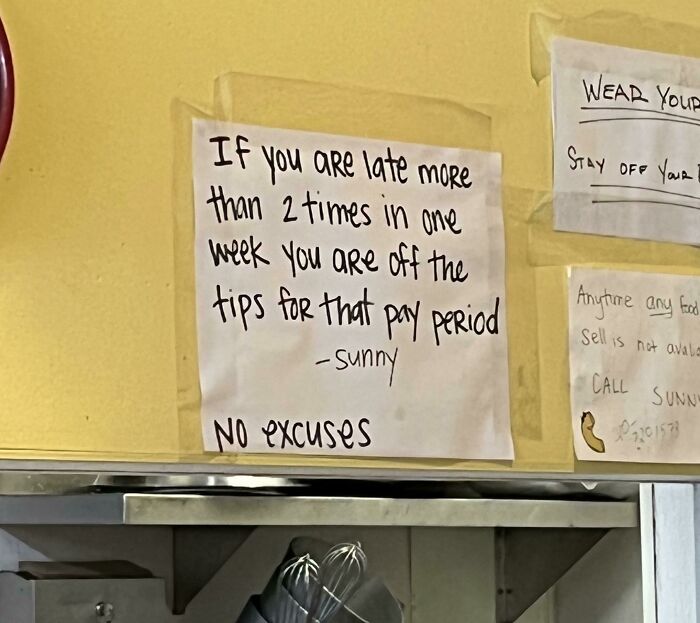 If you are late more
than 2 times in one
week you are off the
tips for that pay period
-Sunny
No excuses
WEAR YOUR
STAY OFF YOUR
Anytime any food
Sell is not
CALL SUNNY